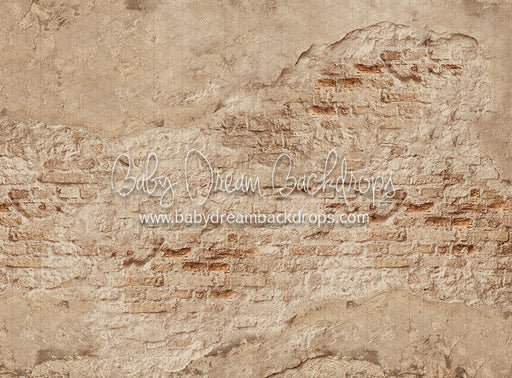 Baby Dream Backdrops
www.babydreambackdrops.com